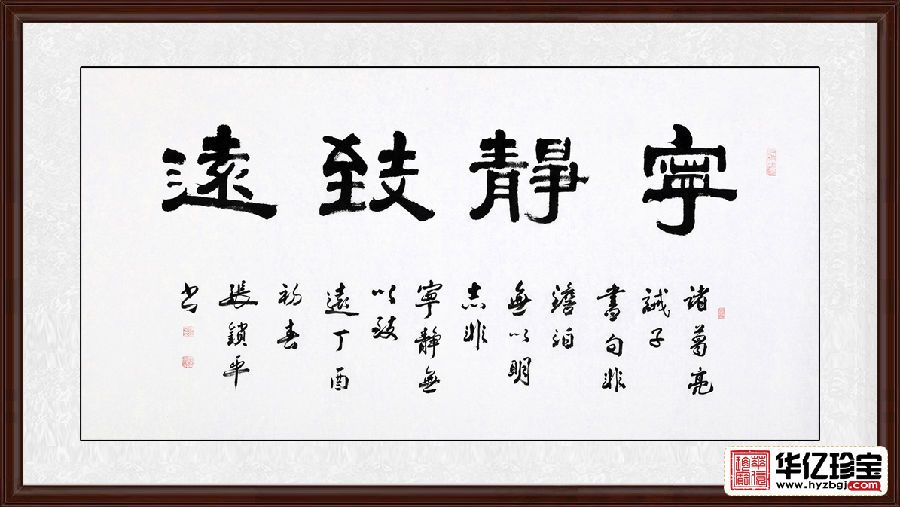 寧靜致遠
諸葛亮
誡子
書句非
澹泊
無以明
志非
寧靜無
以致
遠丁酉
初春
張鎖平
书
华亿珍宝
www.hyzbgj.com